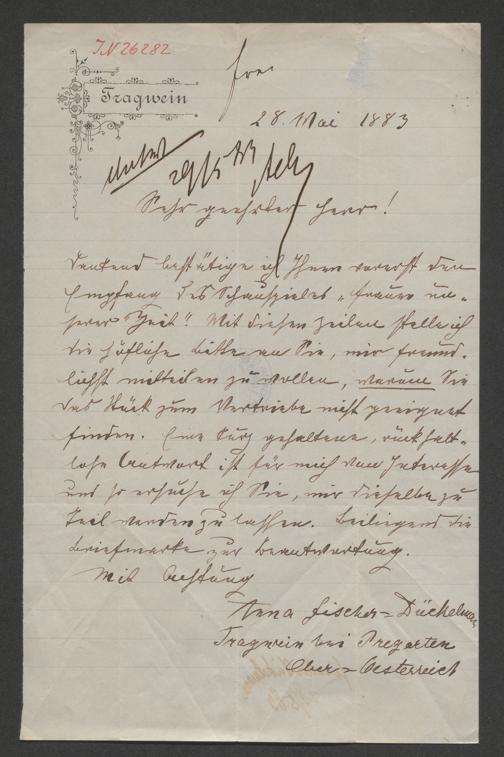 I.N 26282
Tragwein
28. Mai 1883
29/5 83
Sehr geehrter Herr!
Dankend bestätige ich Ihnen vorerst den
Empfang des Schauspieles „Frauen un-
serer Zeit“. Mit diesen Zeilen stelle ich
die höfliche Bitte an Sie, mir freund-
lichst mitteilen zu wollen, warum Sie
das Stück zum Vertriebe nicht geeignet
finden. Eine kurz gehaltene, rückhalt-
lose Antwort ist für mich von Interesse
und so ersuche ich Sie, mir dieselbe zu
teil werden zu lassen. Beiliegend die
Briefmarke zur Beantwortung.
Mit Achtung
Anna Fischer-Dückelmann
Tragwein bei Pregarten
Ober-Oesterreich